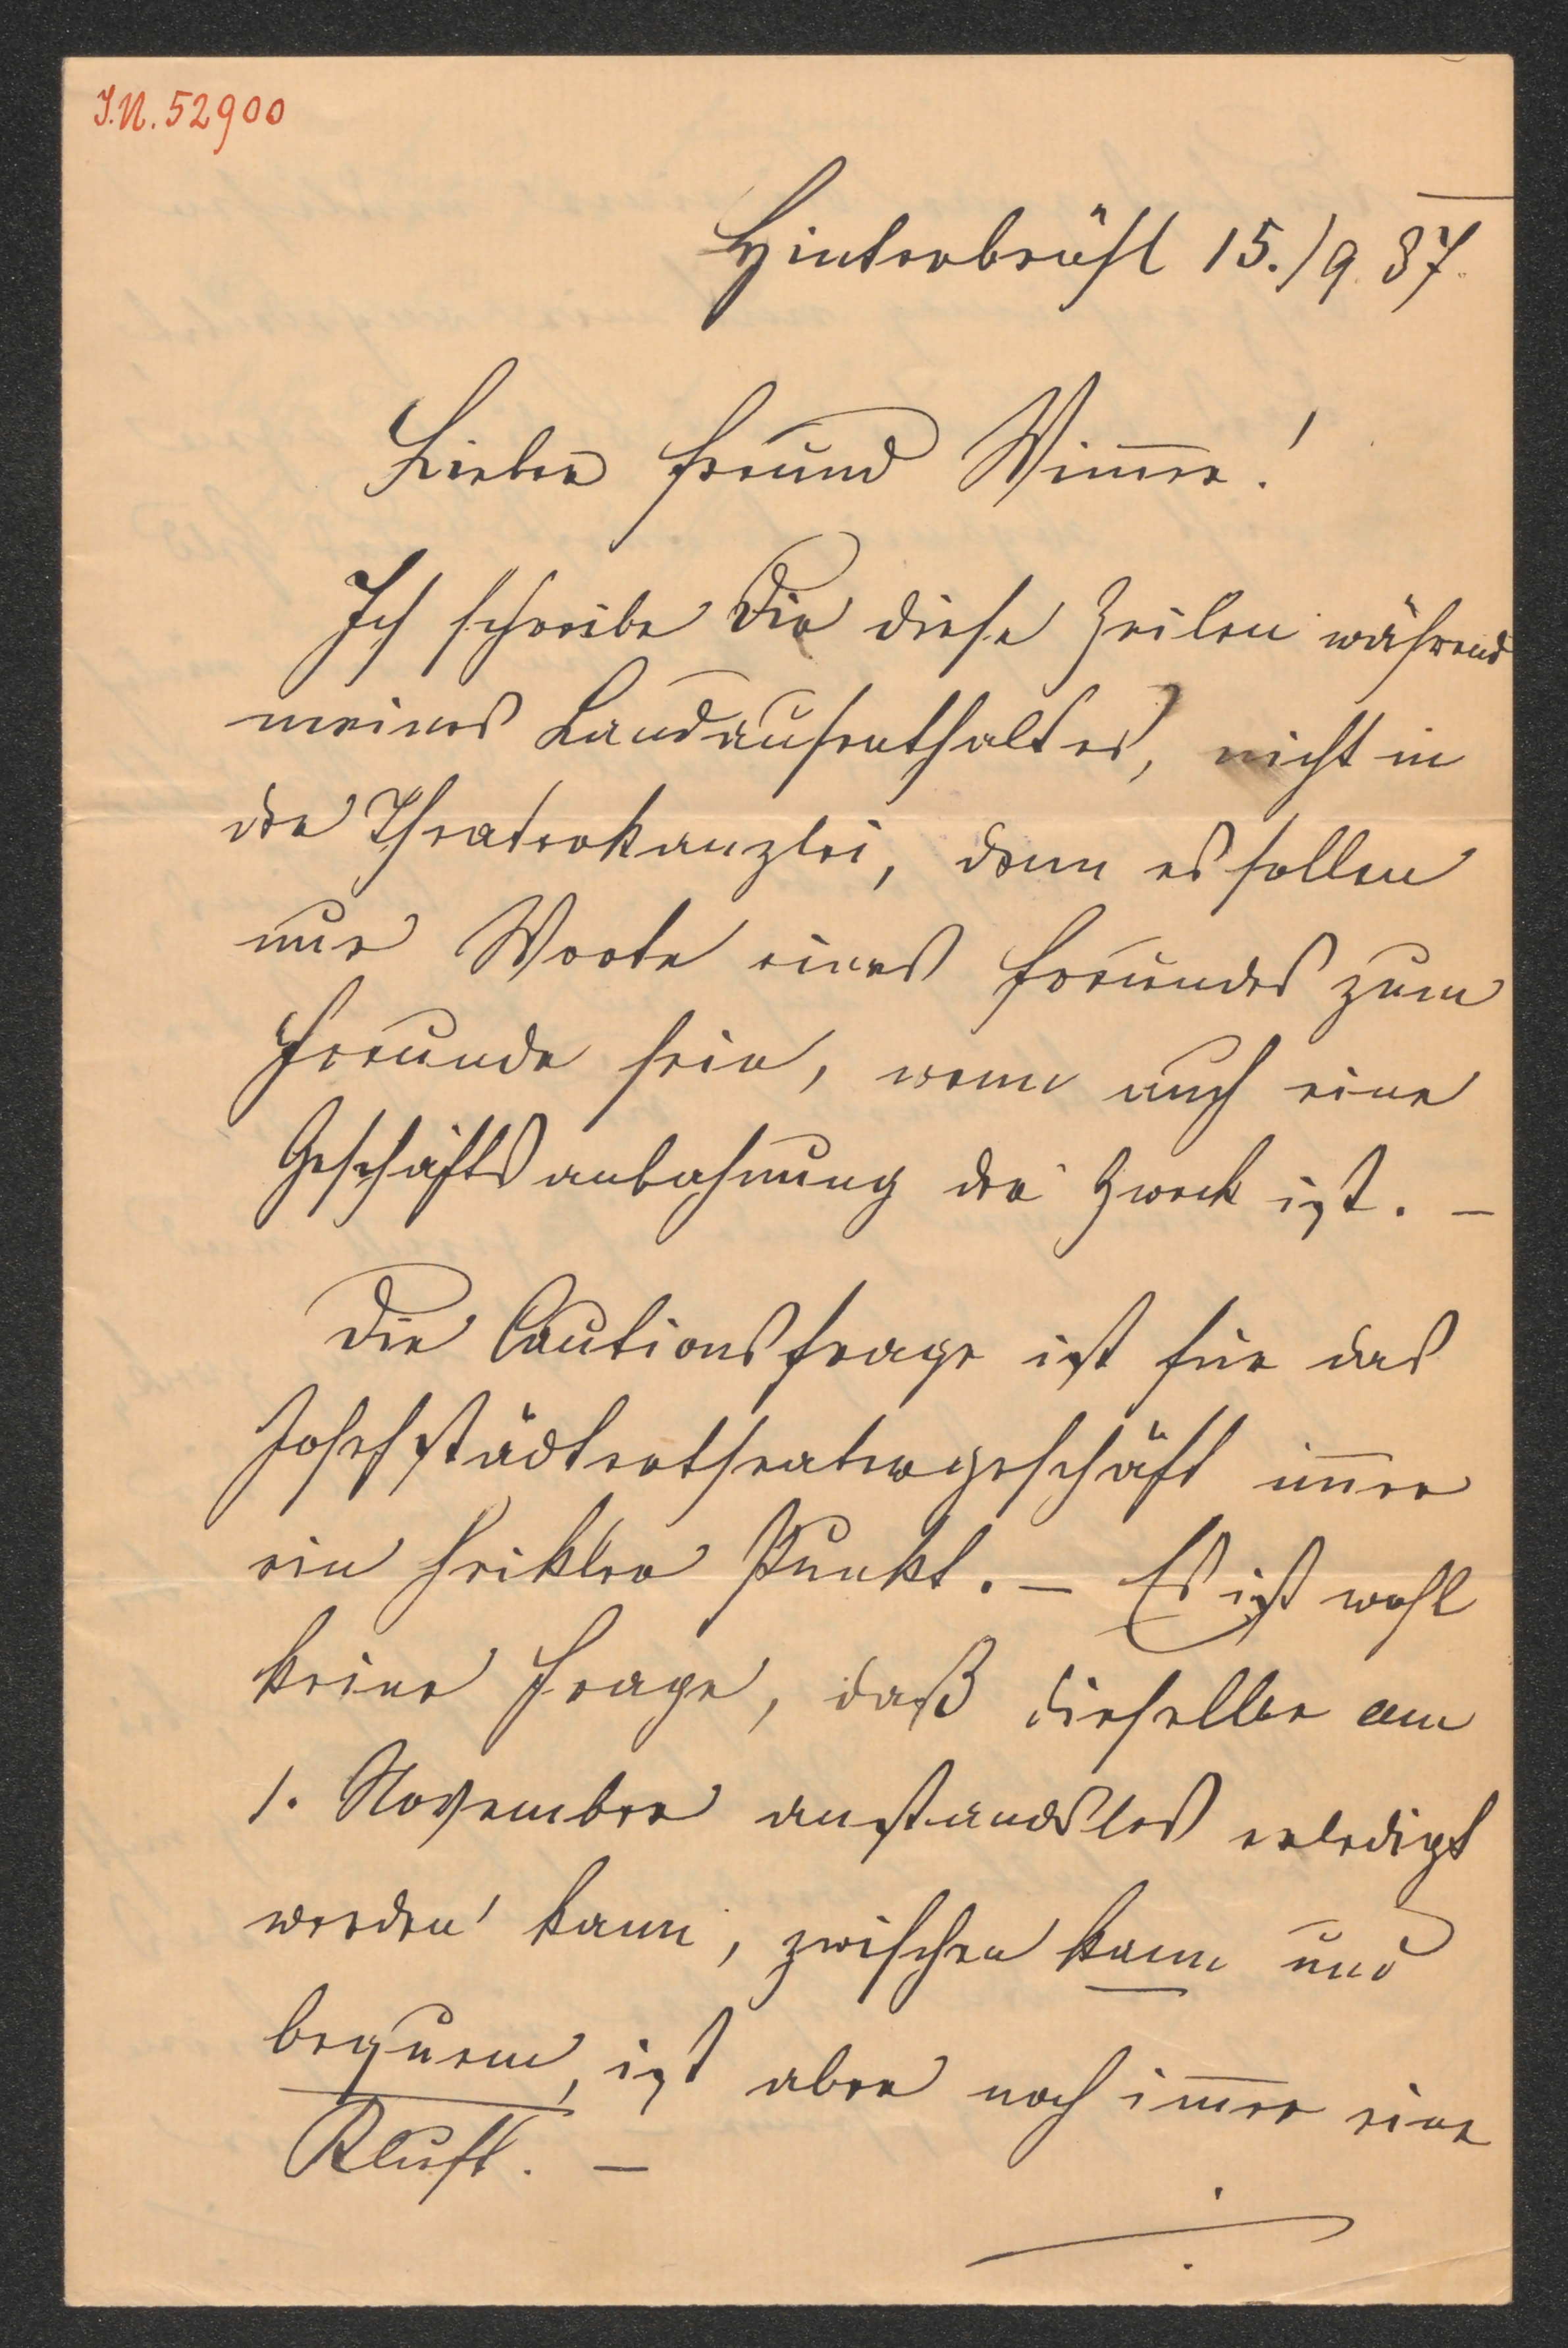 J.N. 52900
Hinterbrühl 15./9. 87.
Lieber Freund Wim̅er!
Ich schreibe Dir diese Zeilen während
meines Landaufenthaltes, nicht in
der Theaterkanzlei, denn es sollen
nur Worte eines Freundes zum
Freunde sein, wenn auch eine
Geschäftsanbahnung der Zweck ist. –
Die Cautionsfrage ist für das
Josefstädtertheatergeschäft im̅er
ein heikler Punkt. – Es ist wohl
keine Frage, daß dieselbe am
1. November anstandslos erledigt
werden kann, zwischen kann und
bequem, ist aber noch im̅er eine
Kluft. –